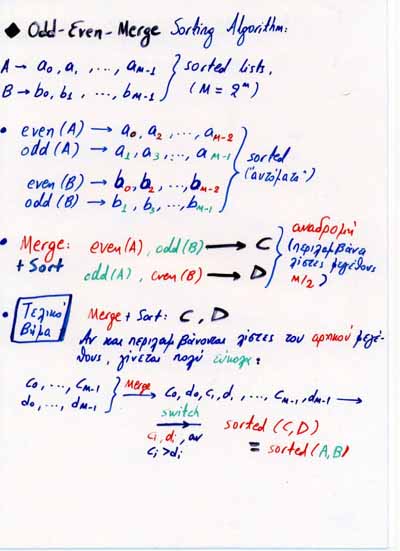 ◆ Odd-Even-Merge Sorting Algorithm:
A → a₀, a₁, ..., a_{M-1} } sorted lists,
B → b₀, b₁, ..., b_{M-1} (M = 2^m)
• even(A) → a₀, a₂, ..., a_{M-2}
odd(A) → a₁, a₃, ..., a_{M-1}
even(B) → b₀, b₂, ..., b_{M-2}
odd(B) → b₁, b₃, ..., b_{M-1}
} sorted
("αυτόματα")
• Merge: even(A), odd(B) → C
+ Sort odd(A), even(B) → D
} αναδρομή
(περιλαμβάνει
λίστες μεγέθους
M/2)
• Τελικό Βήμα
Merge + Sort: C, D
Αν και περιλαμβάνονται λίστες του αρχικού μεγέ-
θους, γίνεται πολύ εύκολα:
c₀, ..., c_{M-1}
d₀, ..., d_{M-1}
} Merge → c₀, d₀, c₁, d₁, ..., c_{M-1}, d_{M-1} →
switch → sorted (C,D)
cᵢ, dᵢ, αν = sorted(A,B)
cᵢ > dᵢ